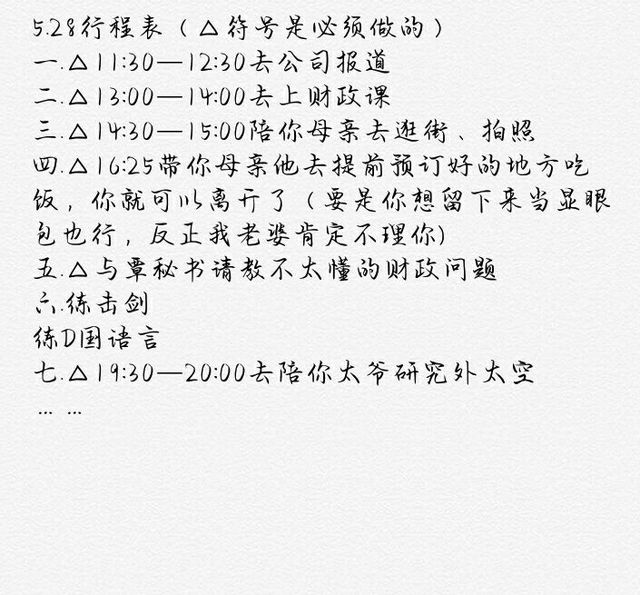 5.28行程表（△符号是必须做的）
一.△11:30—12:30去公司报道
二.△13:00—14:00去上财政课
三.△14:30—15:00陪你母亲去逛街、拍照
四.△16:25带你母亲他去提前预订好的地方吃
饭，你就可以离开了（要是你想留下来当显眼
包也行，反正我老婆肯定不理你)
五.△与覃秘书请教不太懂的财政问题
六.练击剑
练D国语言
七.△19:30—20:00去陪你太爷研究外太空
... ...